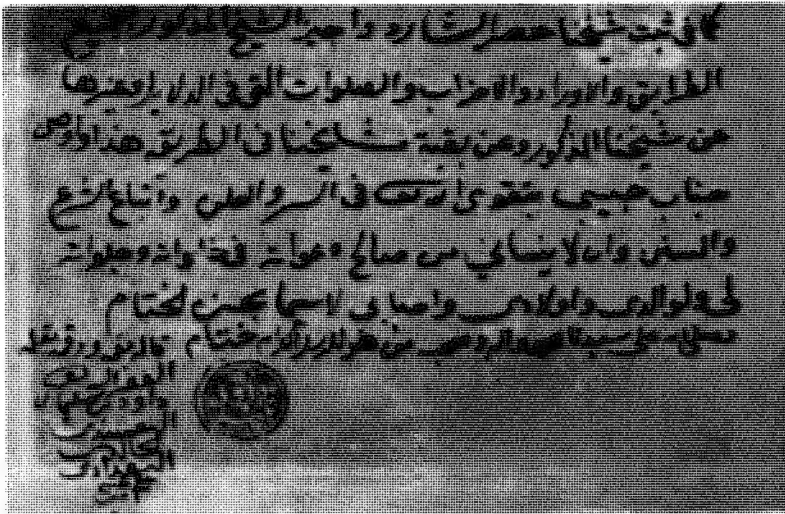 كما في ثبت شيخنا حصر الشارد واجيز الشيخ المذكور بجميع
الطرايق والاوراد والاحزاب والصلوات التي في الدلايل وغيرها
عن شيخنا المذكور وعن بقية مشايخنا في الطريق هذا واوصى
جناب حبيبي بتقوى الله في السر والعلن واتباع الشرع
والسنن وان لا ينساني من صالح دعواته في خلواته وجلواته
لي ولوالدي واولادي واحبابي لاسيما بحسن الختام
وصلى الله على سيدنا محمد واله وصحبه ختام قاله
الفقير اليه
داود بن سليمان
البغدادي